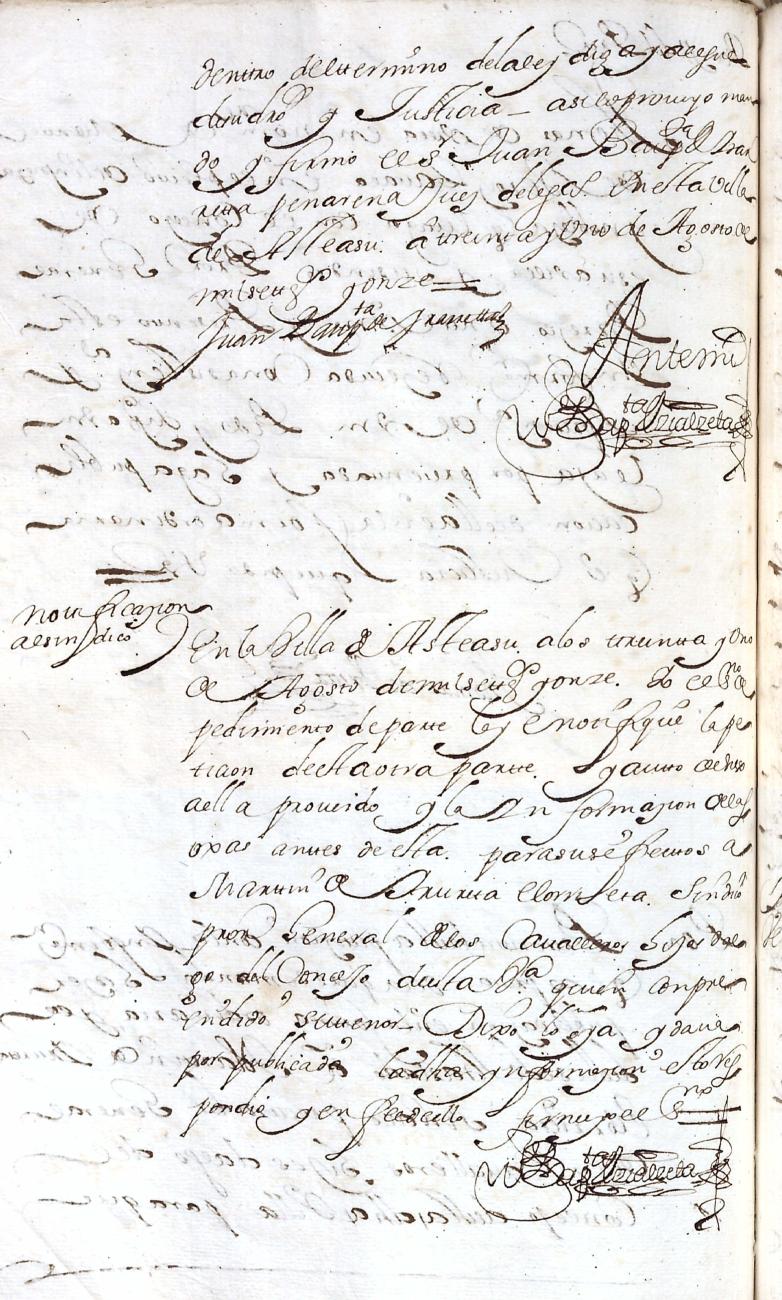 dentro del termino de la ley diga y alegue
de su dro y Justicia _ asi lo proveyo man
do y firmo el sr Juan Bapta de Yrar
reta peñarena Juez delegdo En esta Villa
de Asteasu a treinta y Uno de Agosto de
mil settos y onze
Juan Bapta de Yrarreta
Antemi
Bapta Vzialzeta
Notificazion
al sindico
En la Villa de Asteasu a los treinta y Uno
de Agosto de mil settos y onze Yo el Sno de
pedimiento de parte ley E notifique la pe
tizion desta otra parte y auto dentro
a ella proveido y la Ynformazion de las
oxas antes desta para sus efectos a
Martin de Yruria Elormeta Sindico
pror General de los Cavalleros hijos dal
go del Conzejo desta Va quien conpre
endido su tenor Dixo lo oya y dava
por publicada la dha ynformazion esto res
pondio y en fee de ello firme yo el Sno
Bapta Vzialzeta